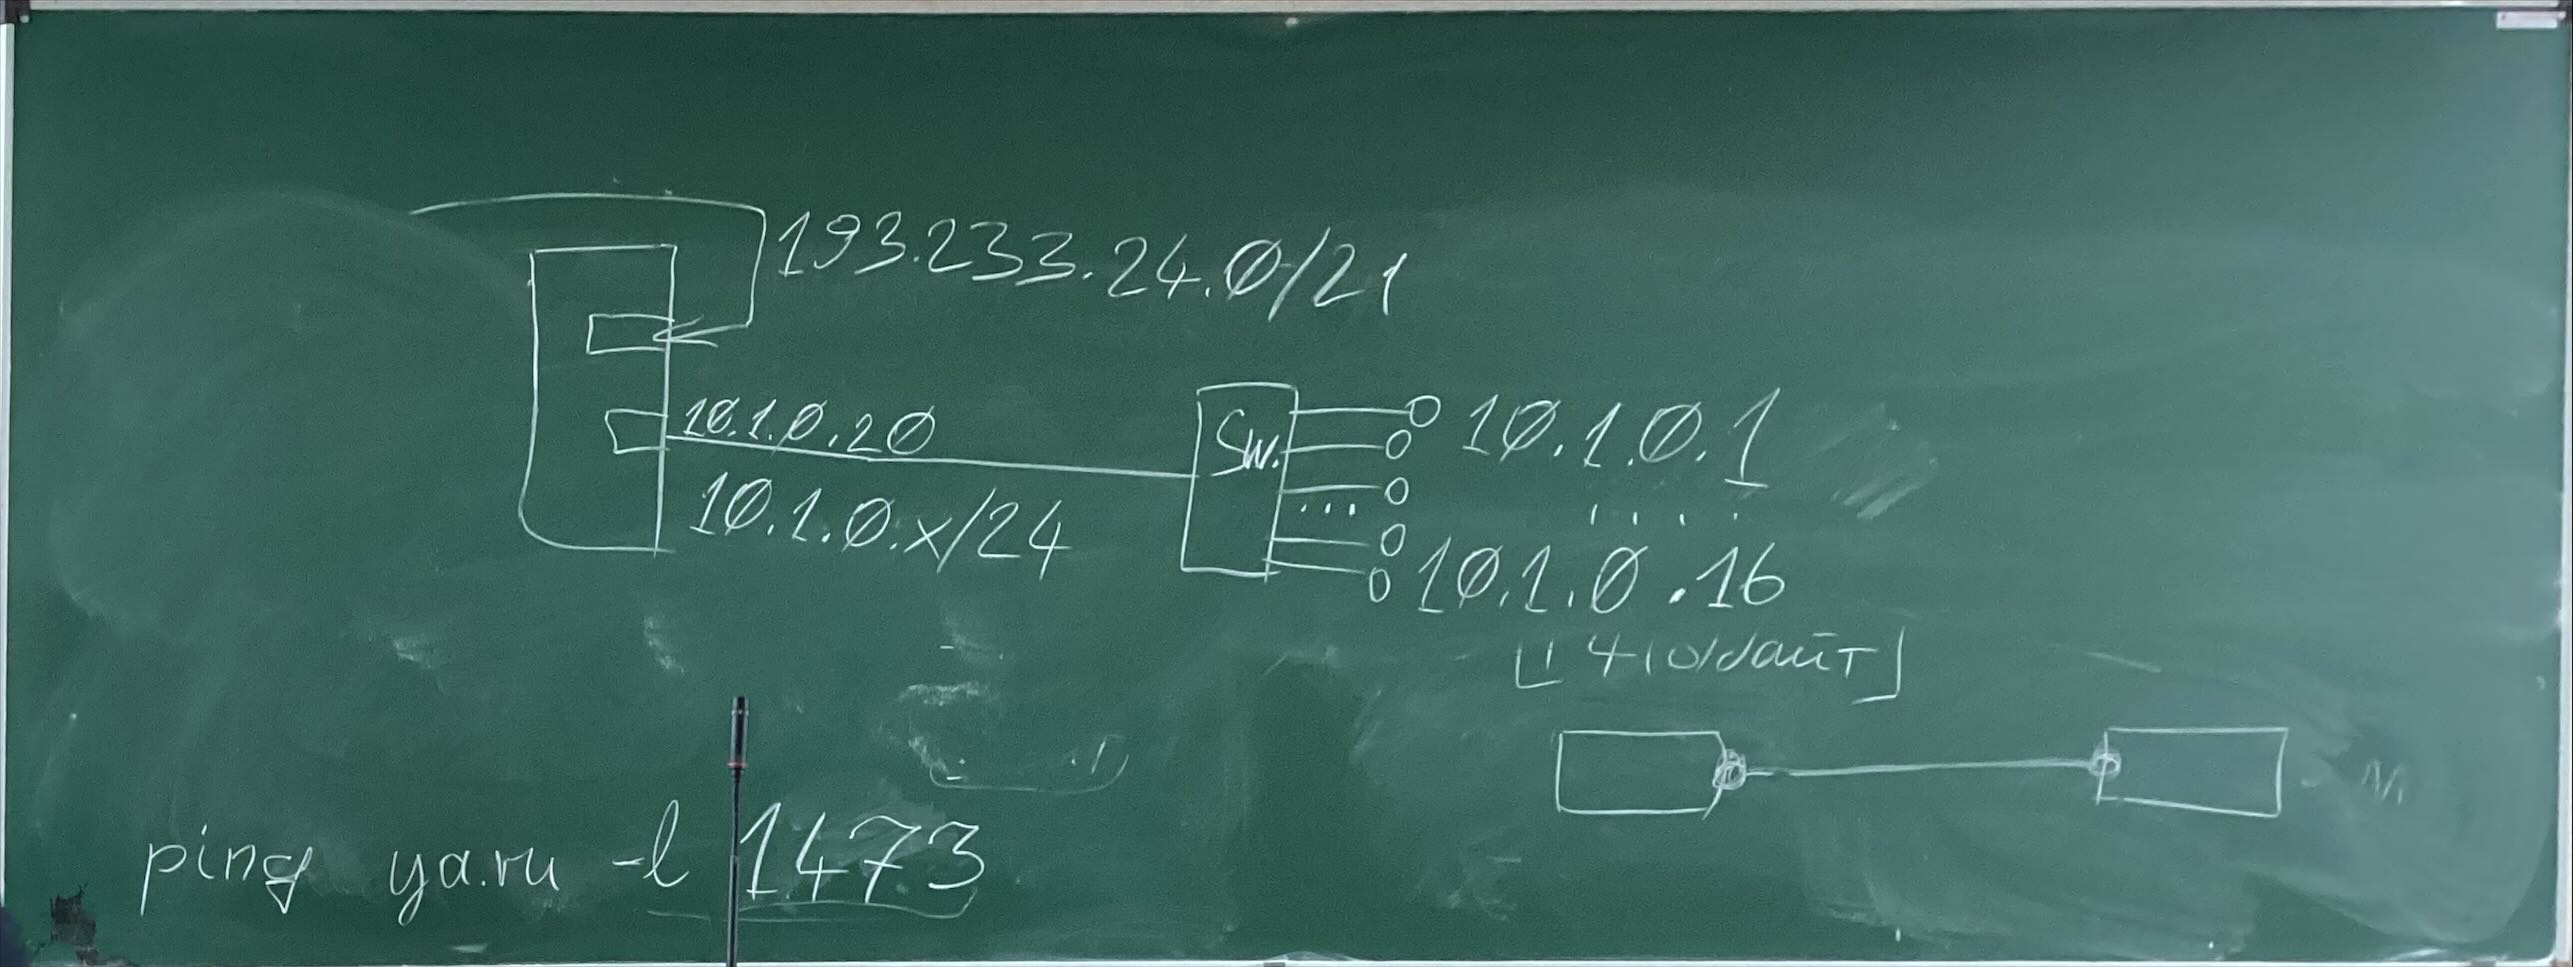 193.233.24.0/21
10.1.0.20
10.1.0.x/24
Sw.
...
10.1.0.1
....
10.1.0.16
байт
ping ya.ru -l 1473